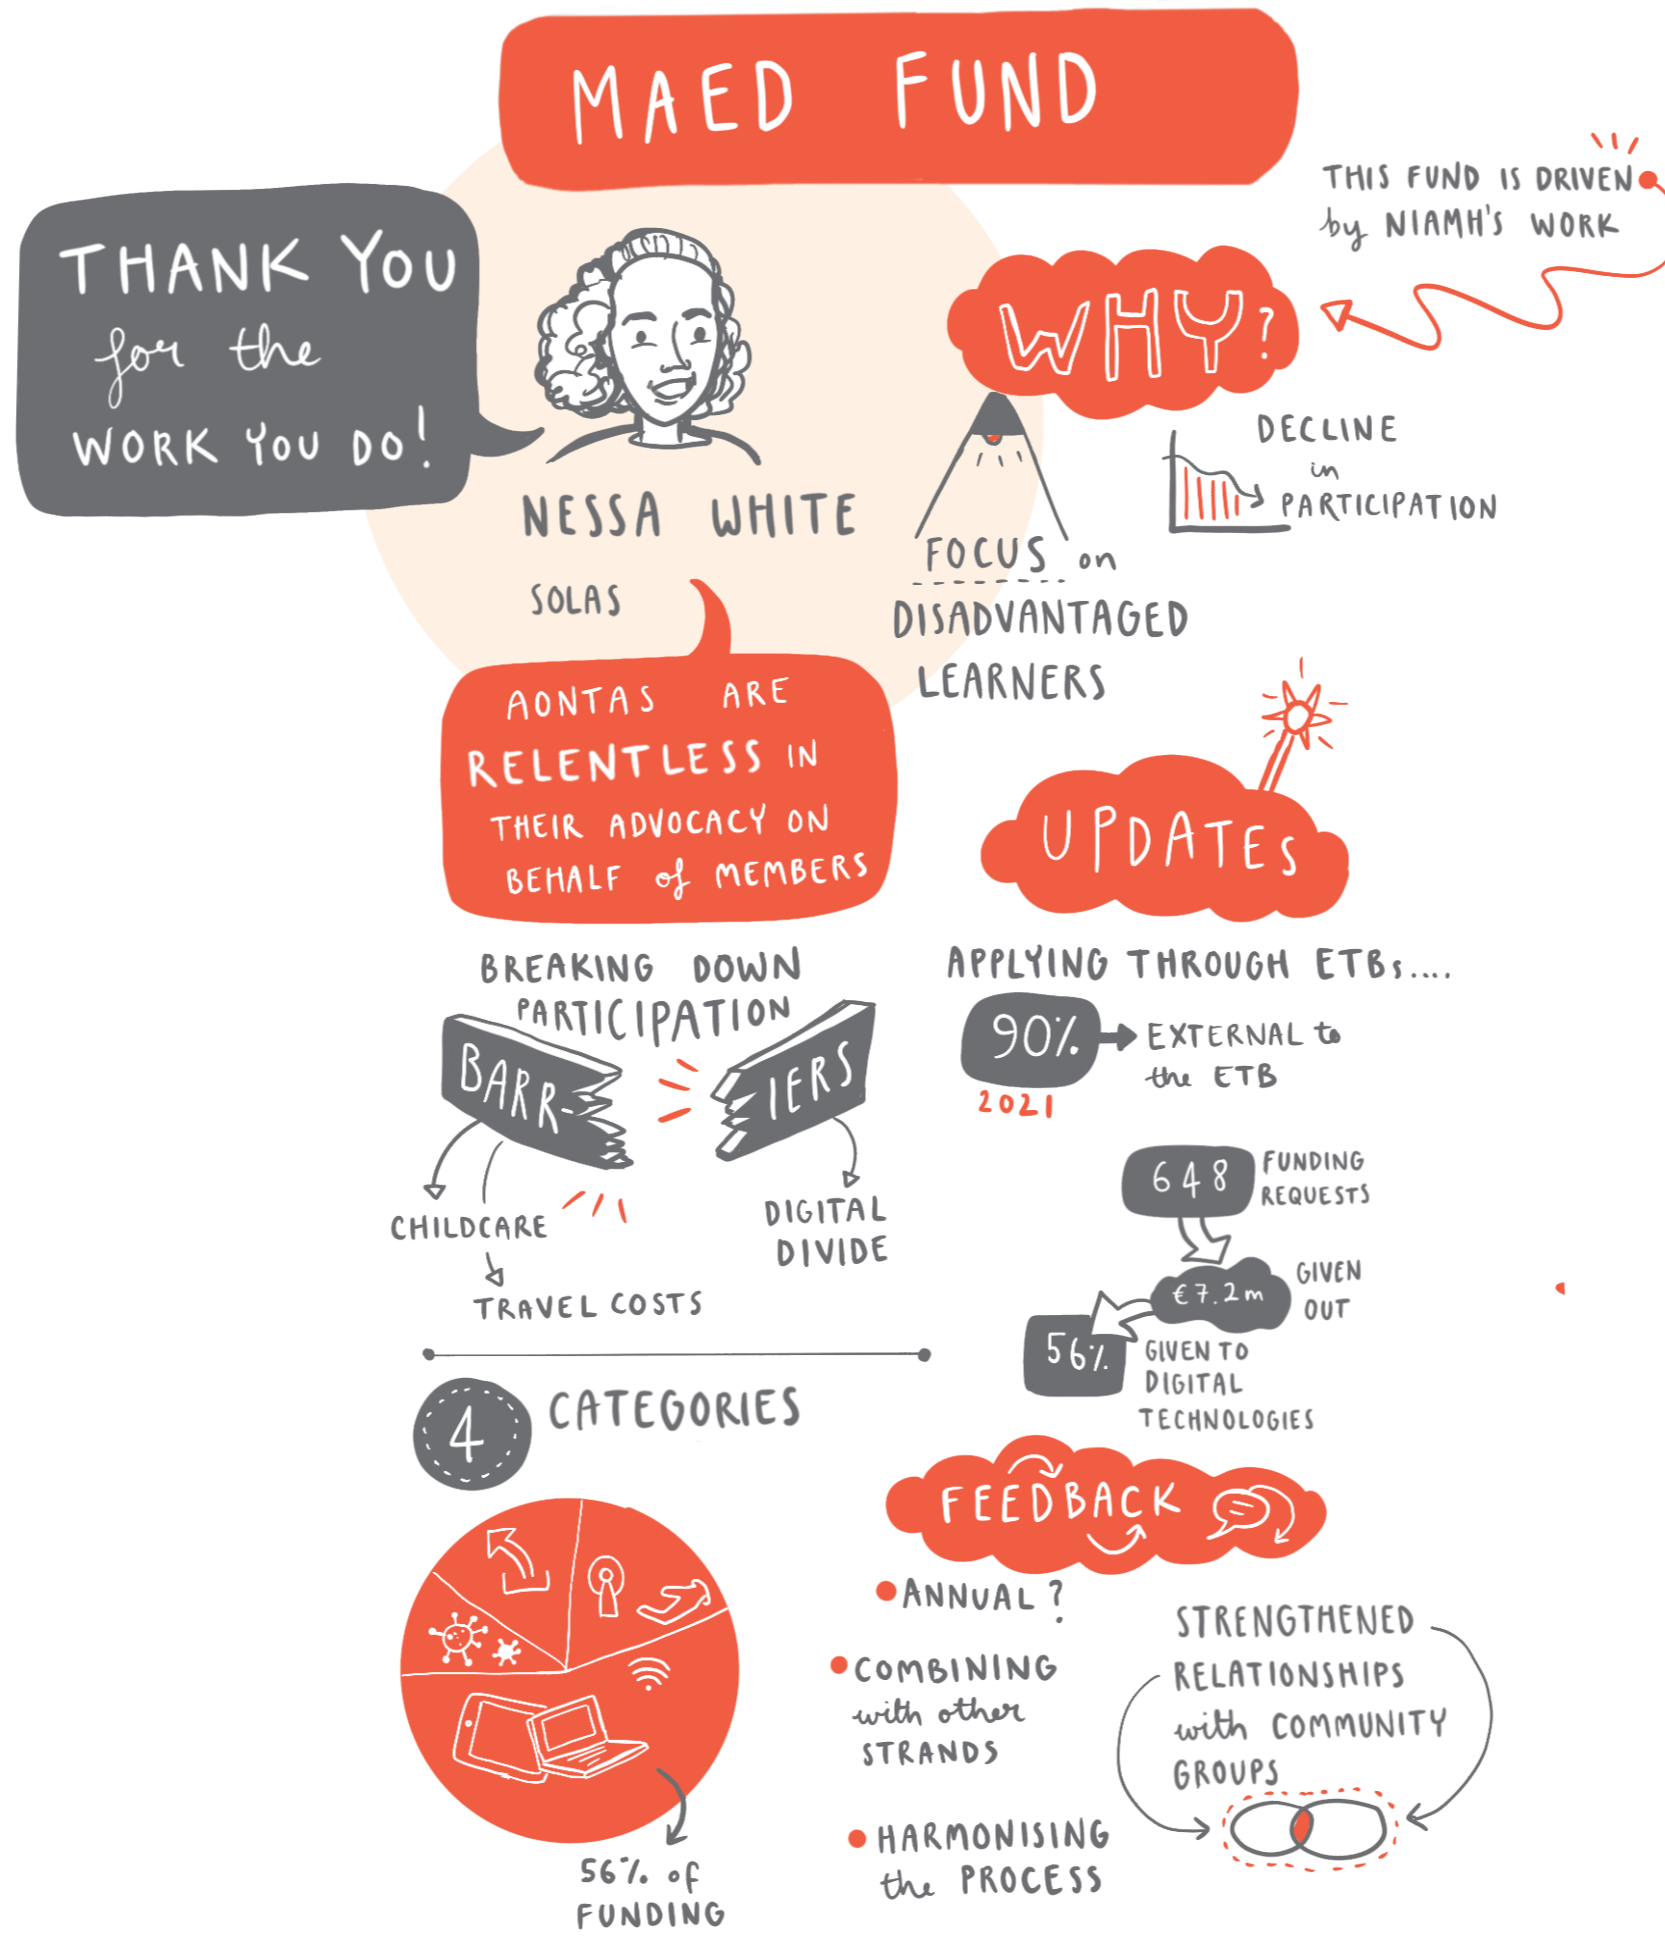 MAED FUND
THANK YOU
for the
WORK YOU DO!
NESSA WHITE
SOLAS
THIS FUND IS DRIVEN
by NIAMH'S WORK
WHY?
DECLINE
in
PARTICIPATION
FOCUS on
DISADVANTAGED
LEARNERS
AONTAS ARE
RELENTLESS IN
THEIR ADVOCACY ON
BEHALF of MEMBERS
BREAKING DOWN
PARTICIPATION
BARR-
IERS
CHILDCARE
TRAVEL COSTS
DIGITAL
DIVIDE
4 CATEGORIES
56% of
FUNDING
UPDATES
APPLYING THROUGH ETBs....
90%
2021
EXTERNAL to
the ETB
648
FUNDING
REQUESTS
€7.2m
GIVEN
OUT
56%
GIVEN TO
DIGITAL
TECHNOLOGIES
FEEDBACK
ANNUAL?
COMBINING
with other
STRANDS
HARMONISING
the PROCESS
STRENGTHENED
RELATIONSHIPS
with COMMUNITY
GROUPS